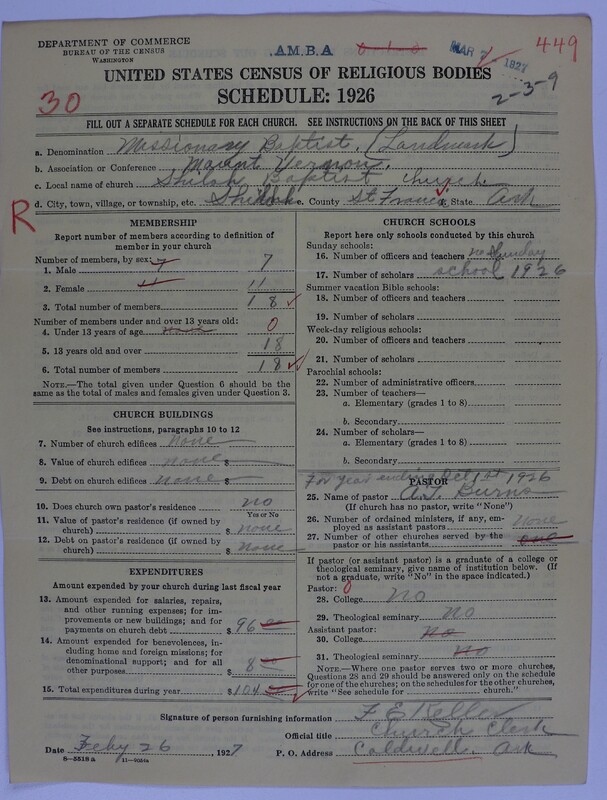 DEPARTMENT OF COMMERCE
BUREAU OF THE CENSUS
WASHINGTON
A.M.B.A
MAR 7 1927
449
2-3-9
30
UNITED STATES CENSUS OF RELIGIOUS BODIES
SCHEDULE: 1926
FILL OUT A SEPARATE SCHEDULE FOR EACH CHURCH. SEE INSTRUCTIONS ON THE BACK OF THIS SHEET
a. Denomination Missionary Baptist. (Landmark)
b. Association or Conference Mount Vernon.
c. Local name of church Shiloh Baptist church
d. City, town, village, or township, etc. Shiloh e. County St Francis f. State Ark
R
MEMBERSHIP
Report number of members according to definition of
member in your church
Number of members, by sex:
1. Male 7 7
2. Female 11 11
3. Total number of members 18
Number of members under and over 13 years old:
4. Under 13 years of age None 0
5. 13 years old and over 18
6. Total number of members 18
NOTE.—The total given under Question 6 should be
the same as the total of males and females given under Question 3.
CHURCH BUILDINGS
See instructions, paragraphs 10 to 12
7. Number of church edifices None
8. Value of church edifices None $
9. Debt on church edifices None $
10. Does church own pastor's residence? no
Yes or No
11. Value of pastor's residence (if owned by
church) $ none
12. Debt on pastor's residence (if owned by
church) $ none
EXPENDITURES
Amount expended by your church during last fiscal year
13. Amount expended for salaries, repairs,
and other running expenses; for im-
provements or new buildings; and for
payments on church debt $ 96 00
14. Amount expended for benevolences, in-
cluding home and foreign missions; for
denominational support; and for all
other purposes $ 8 00
15. Total expenditures during year $ 104 00
CHURCH SCHOOLS
Report here only schools conducted by this church
Sunday schools:
16. Number of officers and teachers no Sunday
17. Number of scholars school 1926
Summer vacation Bible schools:
18. Number of officers and teachers
19. Number of scholars
Week-day religious schools:
20. Number of officers and teachers
21. Number of scholars
Parochial schools:
22. Number of administrative officers
23. Number of teachers—
a. Elementary (grades 1 to 8)
b. Secondary
24. Number of scholars—
a. Elementary (grades 1 to 8)
b. Secondary
For year ending Oct 1st 1926
PASTOR
25. Name of pastor A.T. Burns
(If church has no pastor, write "None")
26. Number of ordained ministers, if any, em-
ployed as assistant pastors None
27. Number of other churches served by the
pastor or his assistants one
If pastor (or assistant pastor) is a graduate of a college or
theological seminary, give name of institution below. (If
not a graduate, write "No" in the space indicated.)
Pastor: 0
28. College No
29. Theological seminary No
Assistant pastor:
30. College No
31. Theological seminary No
NOTE.—Where one pastor serves two or more churches,
Questions 28 and 29 should be answered only on the schedule
for one of the churches; on the schedules for the other churches,
write "See schedule for church."
Signature of person furnishing information F E Keller
Official title Church Clerk
Date Feby 26, 1927 P. O. Address Caldwell, Ark
8-5518a 11-9054a